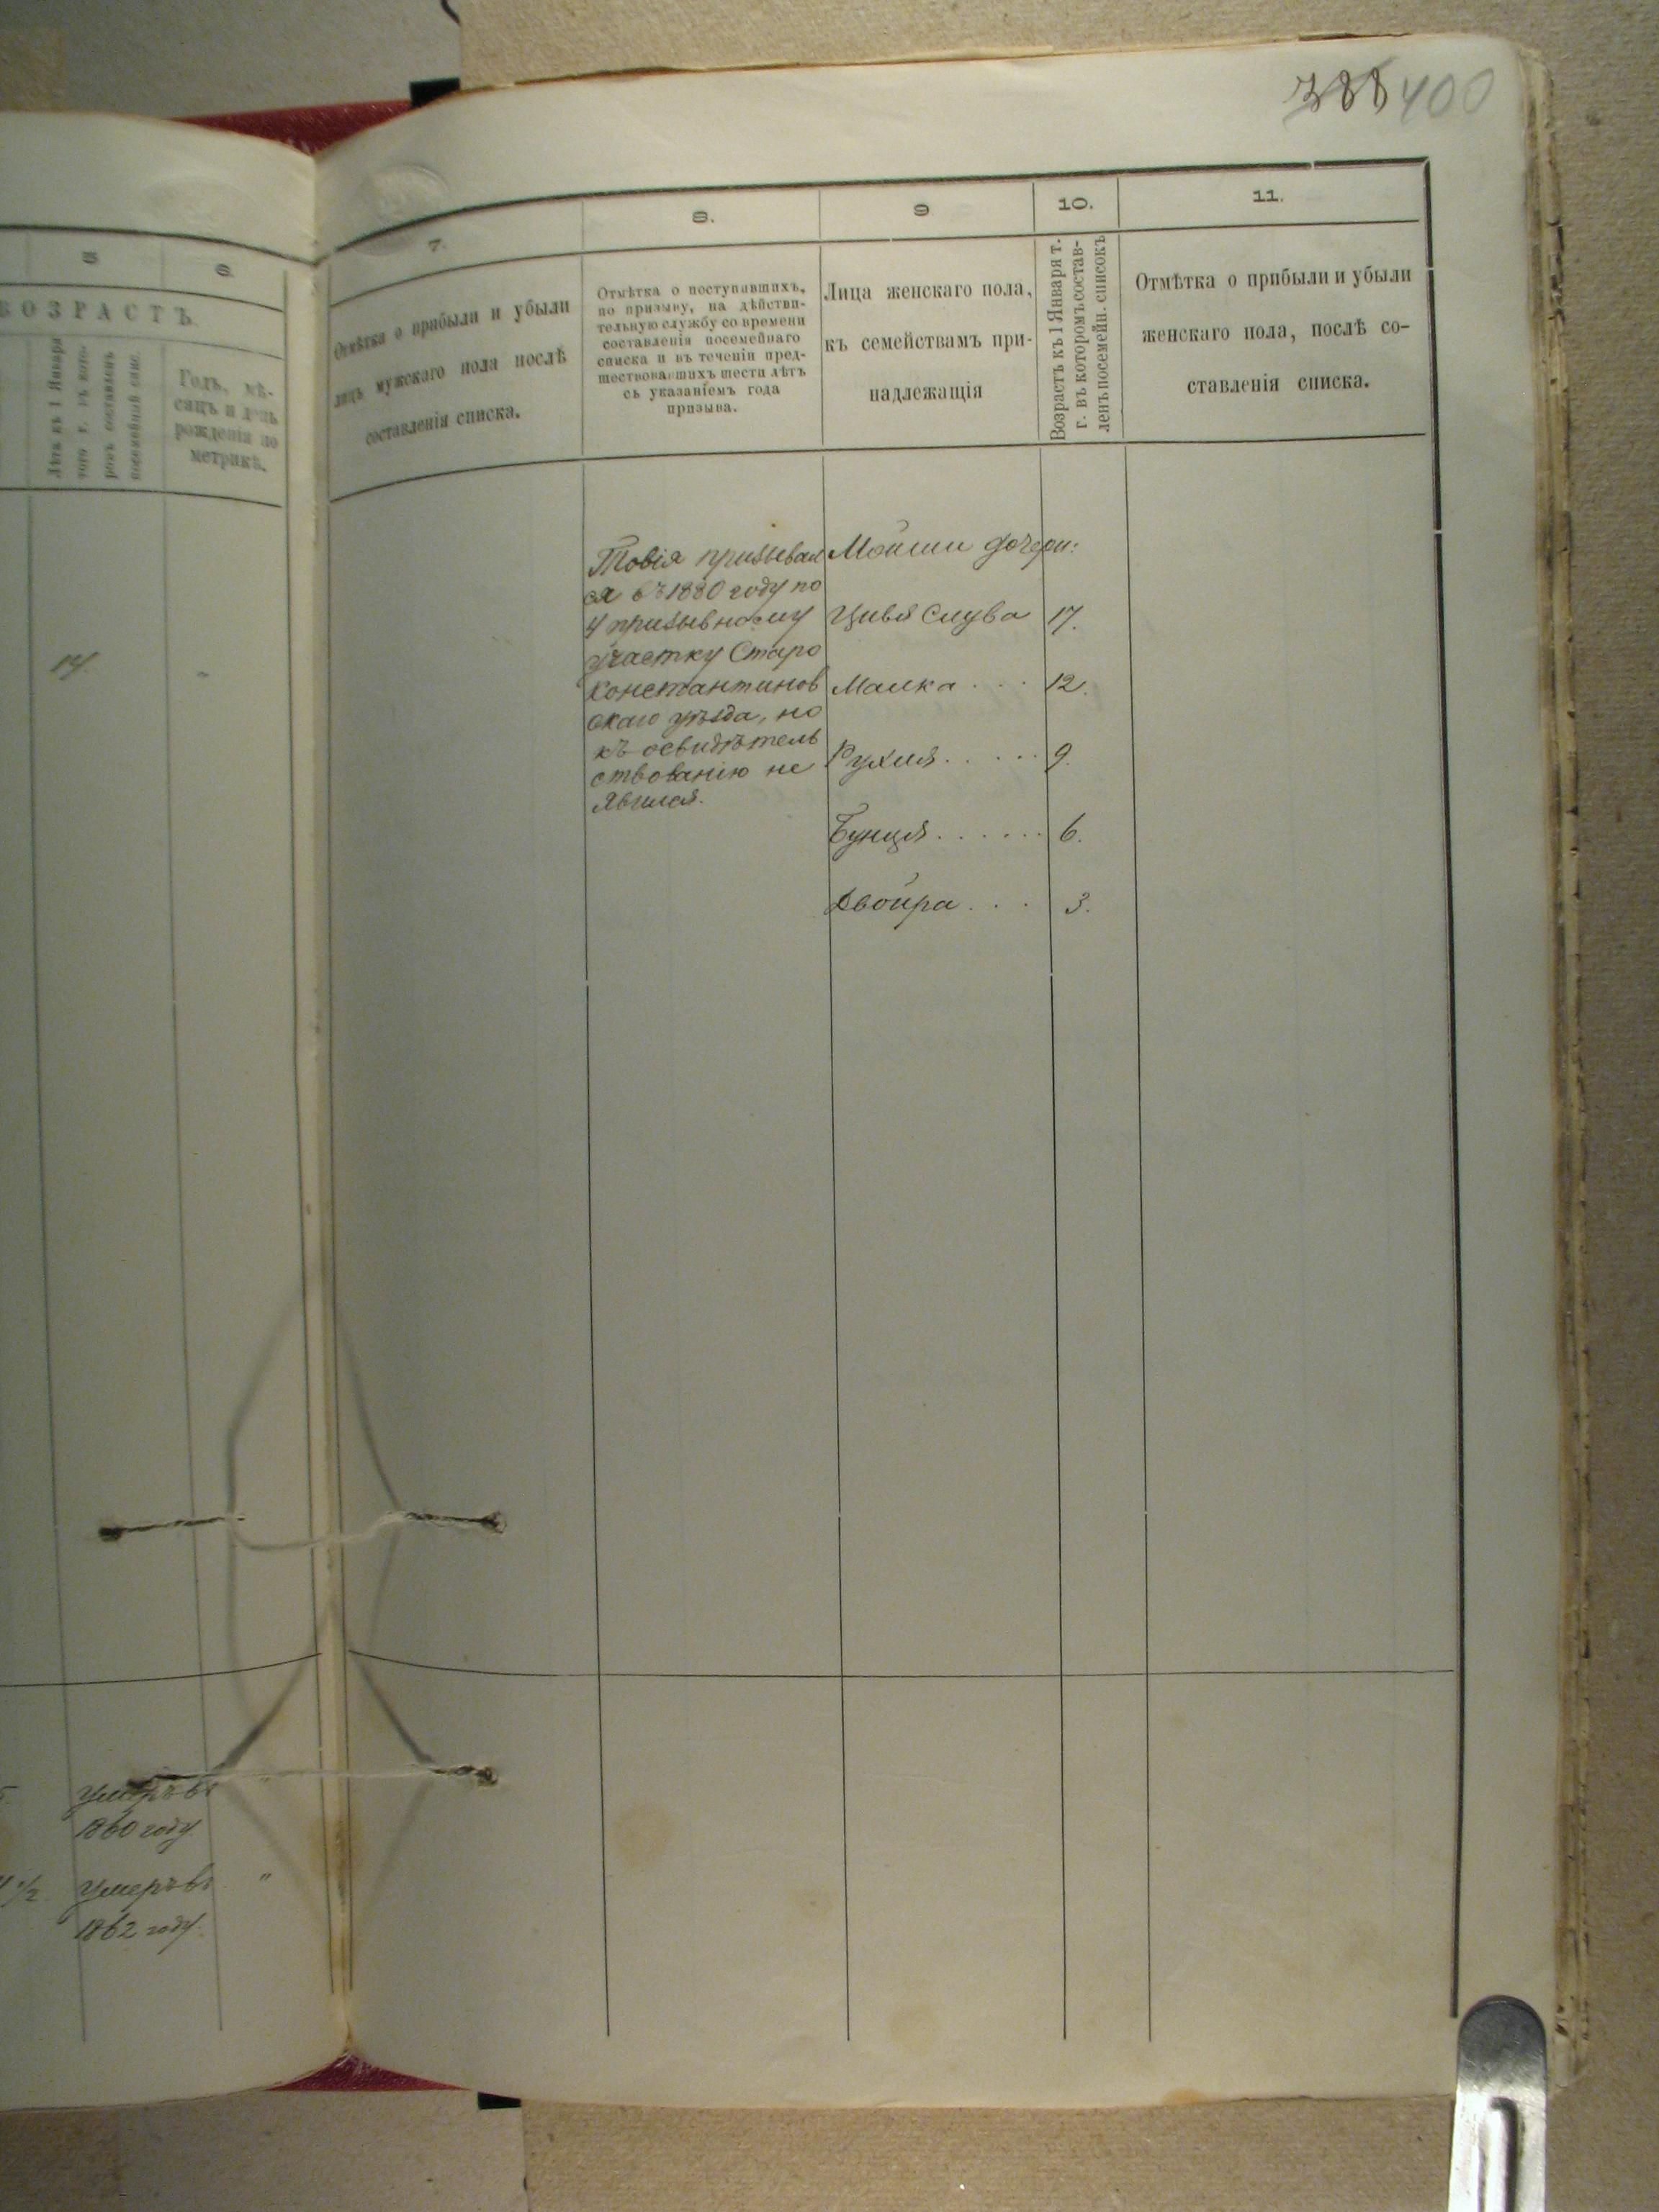 388 400
5
6
ВОЗРАСТЪ.
Лѣтъ къ 1 Января
того г. въ кото-
ромъ составленъ
посемейный спис.
Годъ, мѣ-
сяцъ и день
рожденія по
метрикѣ.
14.
умеръ въ
1860 году
1/2 умеръ въ "
1862 году.
7.
Отмѣтка о прибыли и убыли
лицъ мужскаго пола послѣ
составленія списка.
8.
Отмѣтка о поступавшихъ,
по призыву, на дѣйстви-
тельную службу со времени
составленія посемейнаго
списка и въ теченіи пред-
шествовавшихъ шести лѣтъ
съ указаніемъ года
призыва.
Товія призывал
ся въ 1880 году по
4 призывному
участку Старо
константинов
скаго уѣзда, но
къ освидѣтель
ствованію не
явился.
9
Лица женскаго пола,
къ семействамъ при-
надлежащія
10.
Возрастъ къ 1 Января т.
г. въ которомъ состав-
ленъ посемейн. списокъ
Мойши дочери:
Цивя Слува 17.
Малка . . . 12.
Рухля . . . . . 9.
Бунця . . . . . . 6.
Двойра . . . 3.
11.
Отмѣтка о прибыли и убыли
женскаго пола, послѣ со-
ставленія списка.